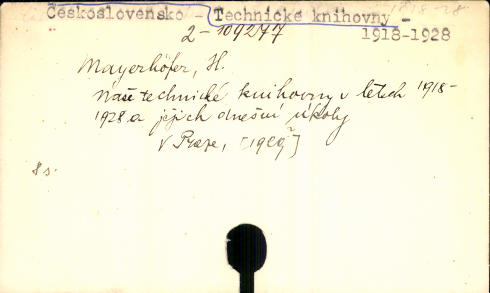 Československo - Technické knihovny -
2-109277
1918-1928
Mayerhöfer, H.
Naše technické knihovny v letech 1918-
1928 a jejich dnešní úkoly
V Praze,
8 s.